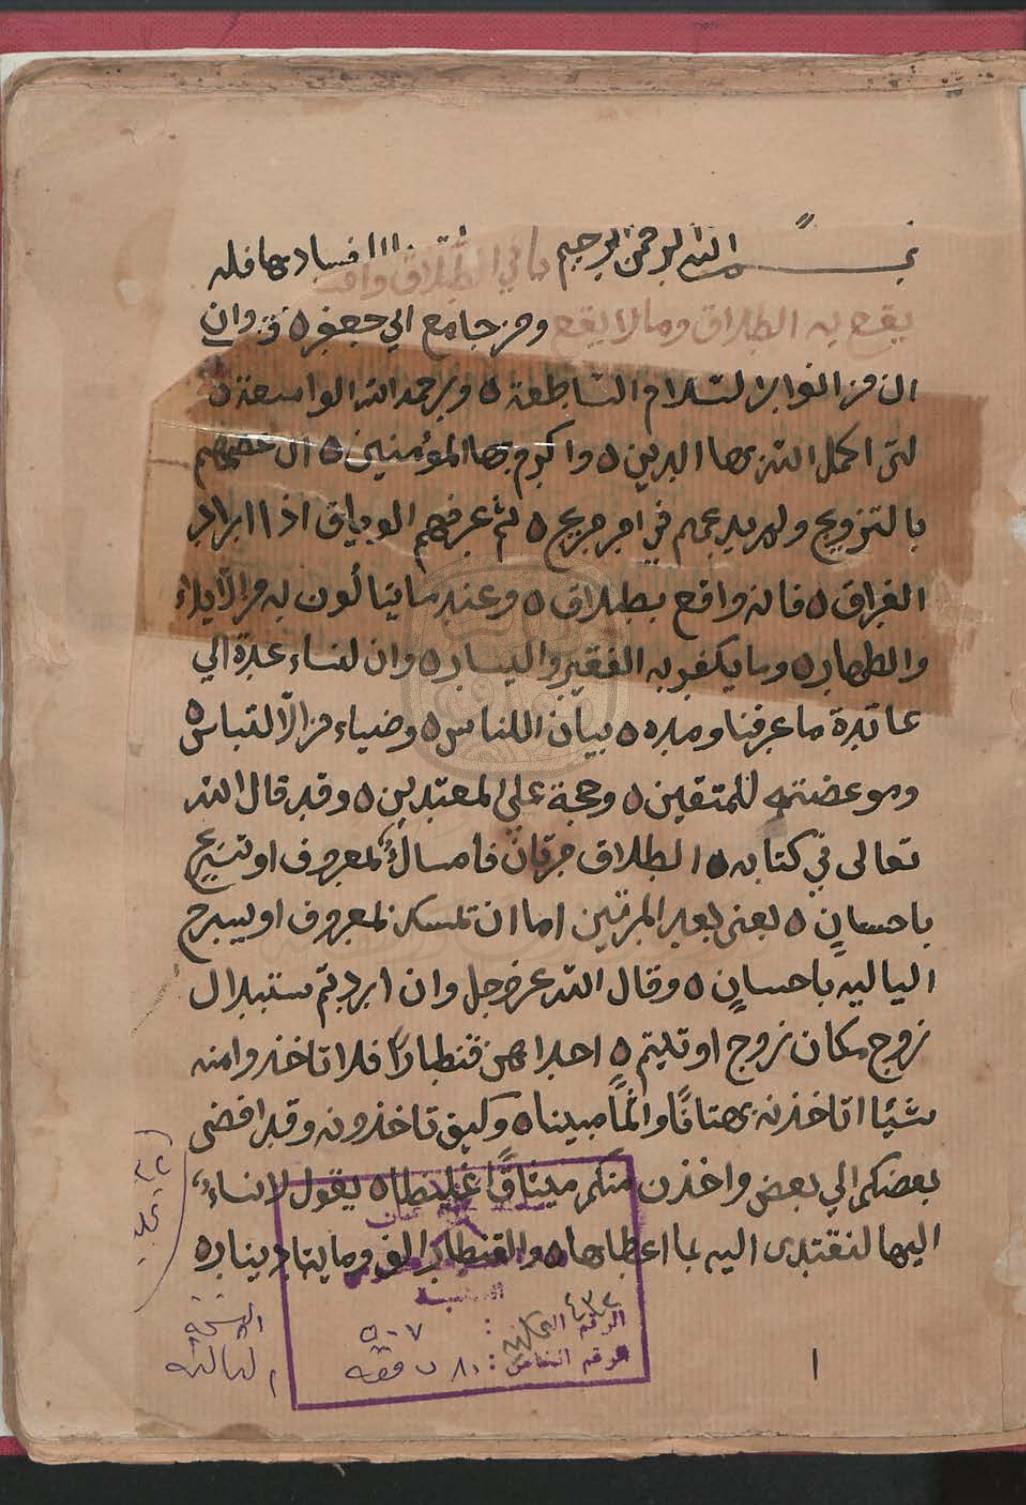 بسم الله الرحمن الرحيم باب في الطلاق فسادها فله
يقع به الطلاق وما لا يقع ومن جامع ابي جعفر ٥ وان
ان من الساطعة ٥ وبرحمة الله الواسعة ٥
لتي اكمل الله بها الدين ٥ واكرم بها المؤمنين ٥ ان خصهم
بالتزويج ولم يدعهم في امر مريج ٥ ثم عرفهم اذا اراد
الفراق ٥ فانه واقع بطلاق ٥ وعند ما يتألون به من الايلاء
والظهار ٥ وما يكفر به الفقير واليسار ٥ وان لنساء عدة الي
عائدة ما عرفنا ومده ٥ بيان اللناس ٥ وضياء من الالتباس ٥
وموعضته للمتقين ٥ وحجة على المعتدين ٥ وقد قال الله
تعالى في كتابه ٥ الطلاق مرتان فامساك بمعروف او تسريح
باحسان ٥ يعني بعد المرتين اما ان تمسك بمعروف او يسرح
الياليه باحسان ٥ وقال الله عز وجل وان اردتم ستبدال
زوج مكان زوج اوتيتم ٥ احداهن قنطارا فلا تاخذوا منه
شيئا اتاخذنه بهتانا واثما مبينا ٥ وكيف تاخذونه وقد افضى
بعضكم الي بعض واخذن منكم ميثاقا غليظا ٥ يقول لا نساء
اليها لتفتدى اليه بما اعطاها ٥ والقنطار الف وما يتا دينار ٥
الرقم العام : ٥٠٧
الرقم الخاص : ٨٠ فقه
النسخة
الثالثة
١